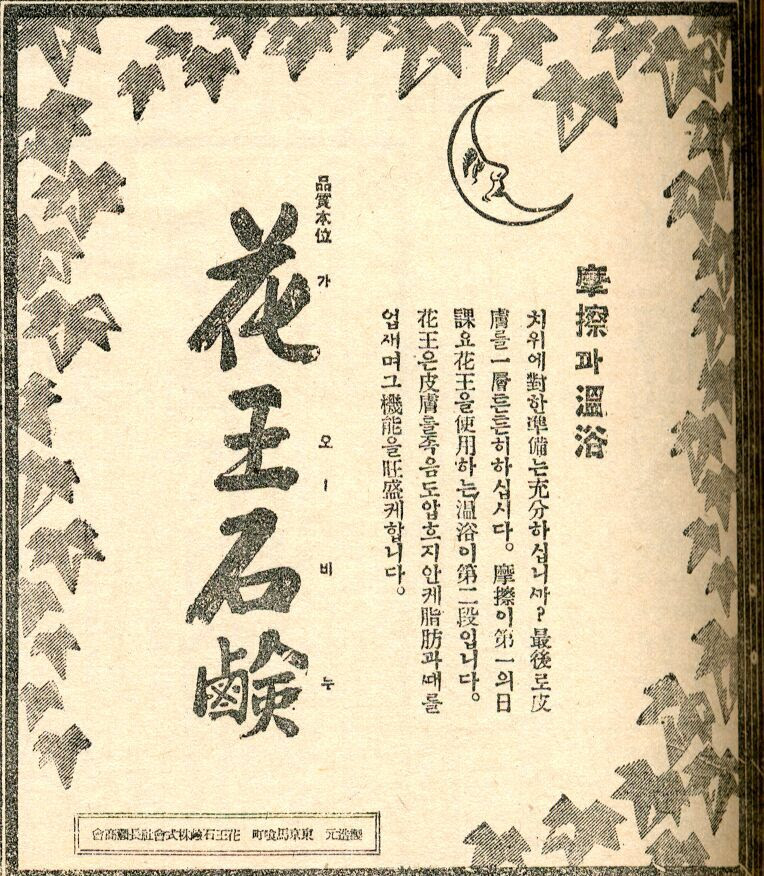 摩擦과 溫浴
치위에對한準備는充分하십니까? 最後로皮
膚를一層튼튼히하십시다。摩擦이第一의日
課요花王을使用하는溫浴이第二段입니다。
花王은皮膚를족음도압흐지안케脂肪과때를
업새며그機能을旺盛케합니다。
品質本位
가오ー비누
花王石鹸
製造元 東京馬喰町 花王石鹸株式會社長瀨商會